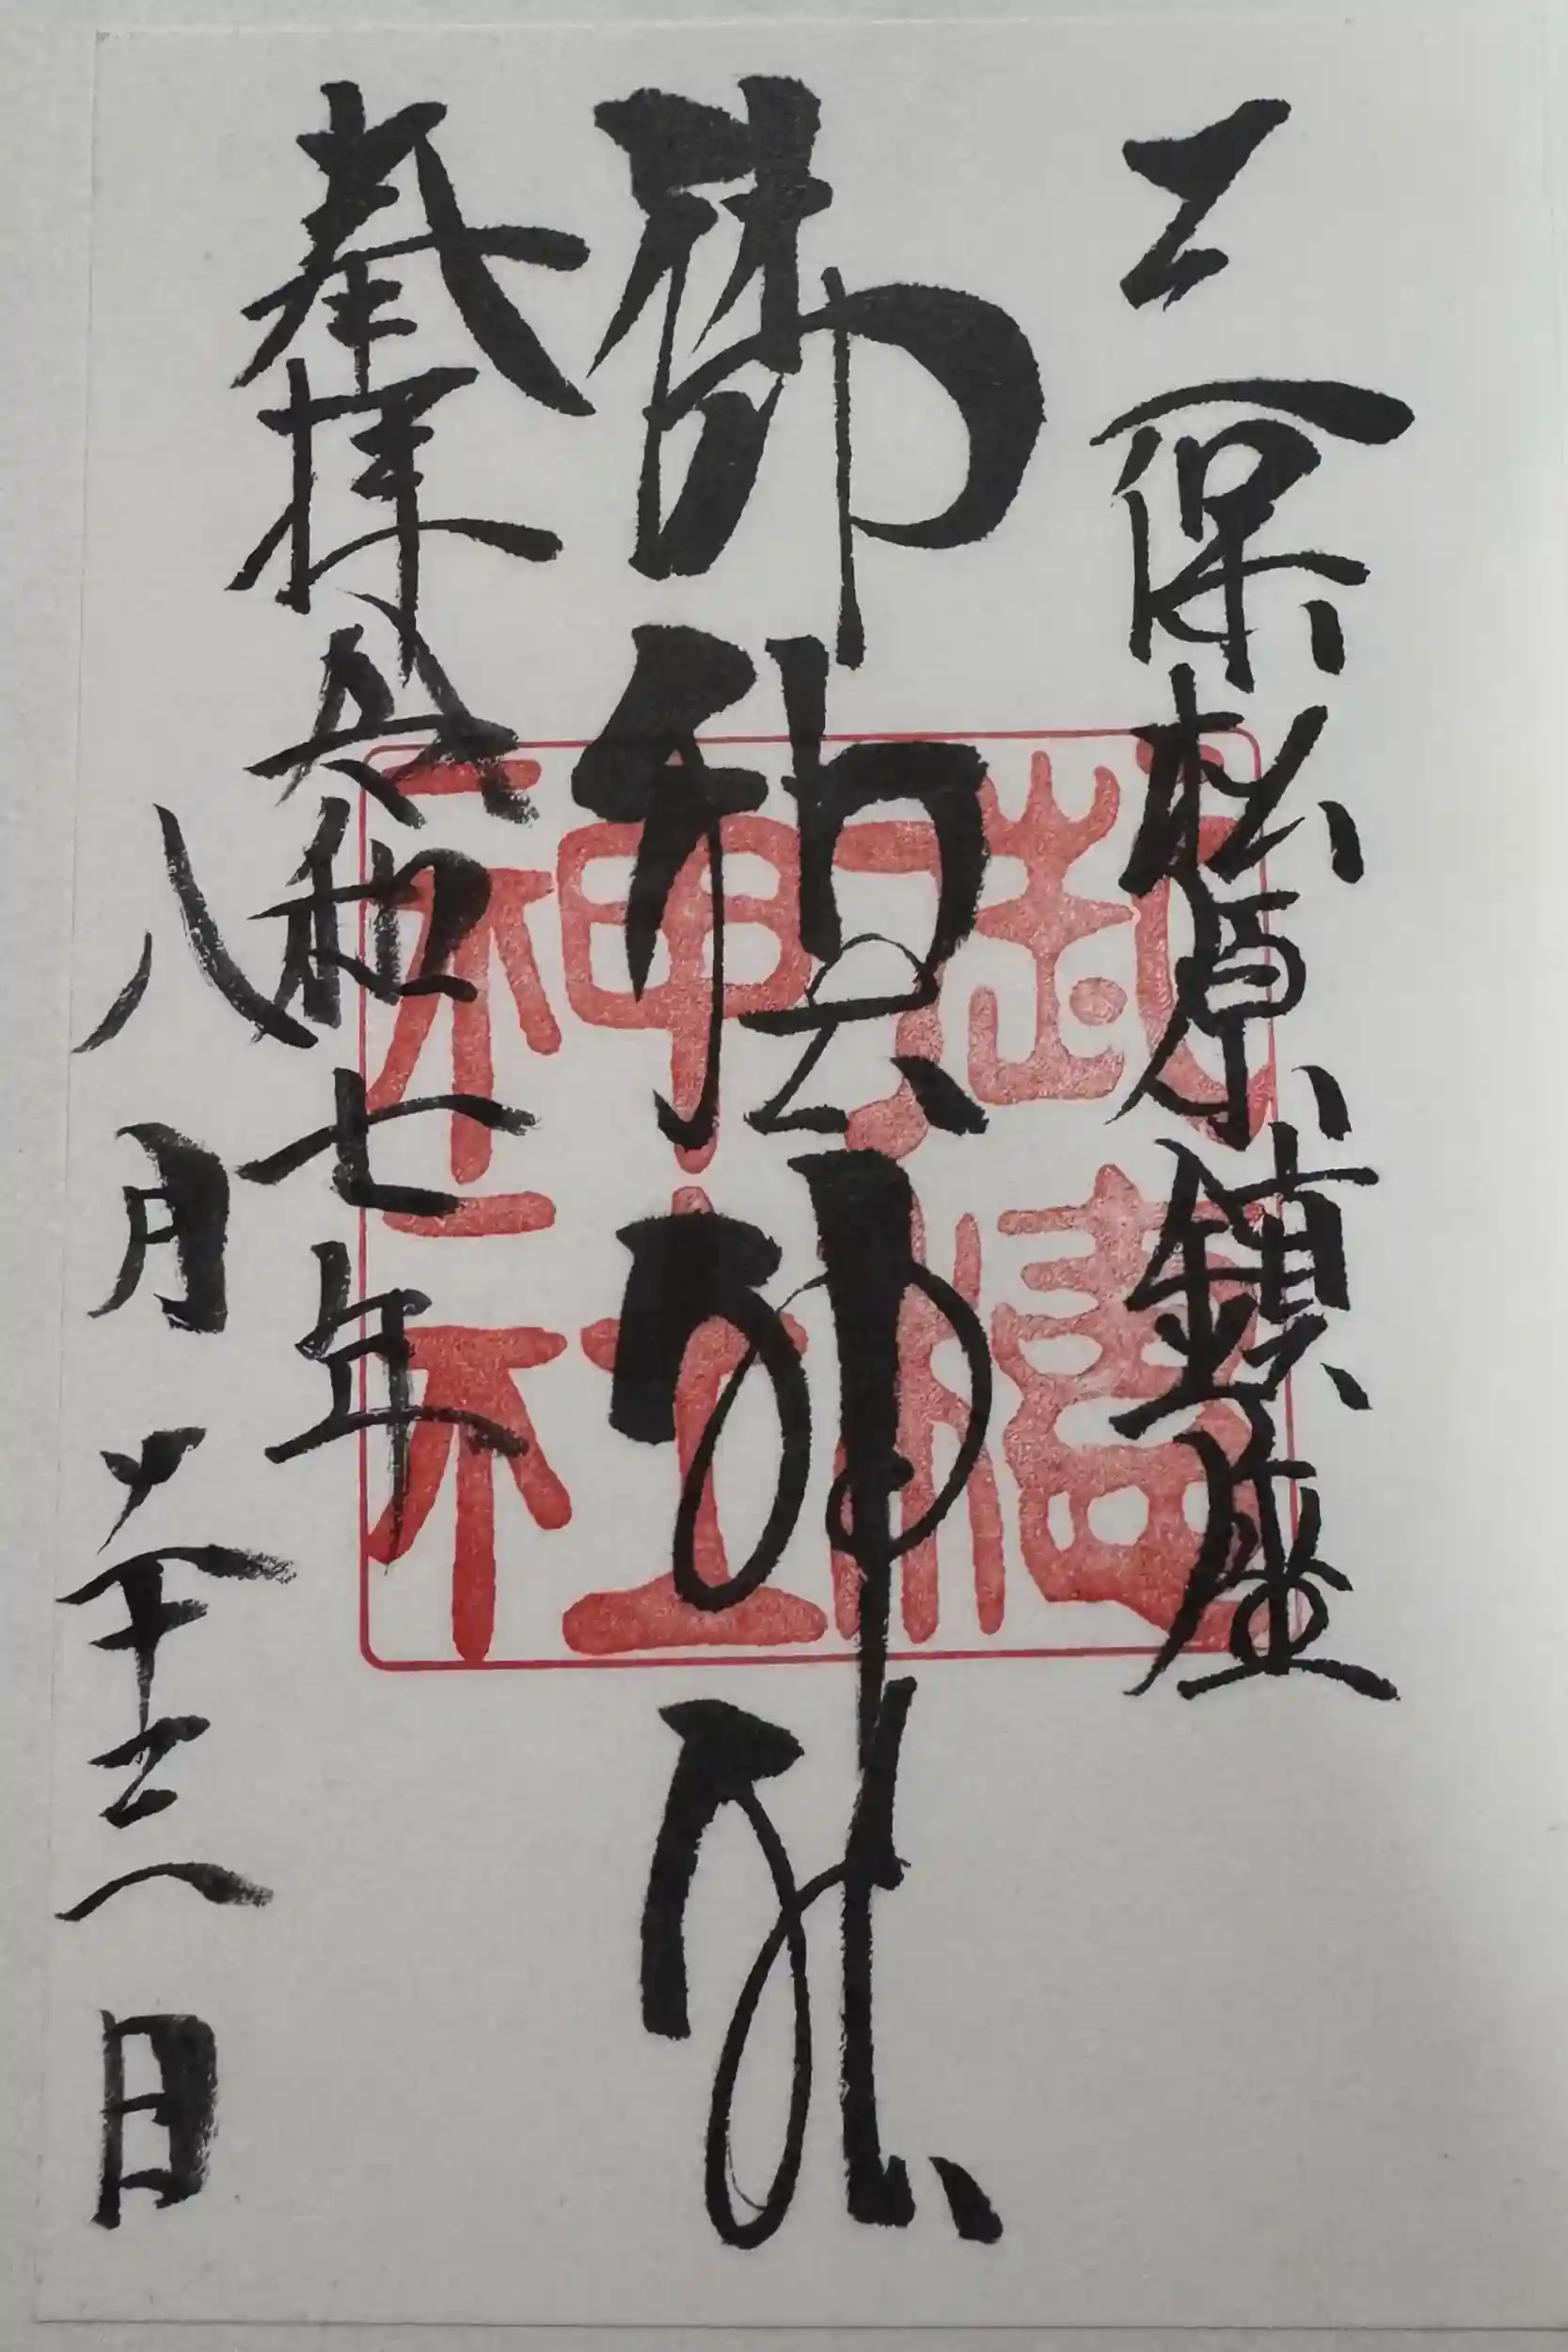 三保松原鎮座
御穂神社
奉拝 令和七年
八月二十三日
御穗
神社